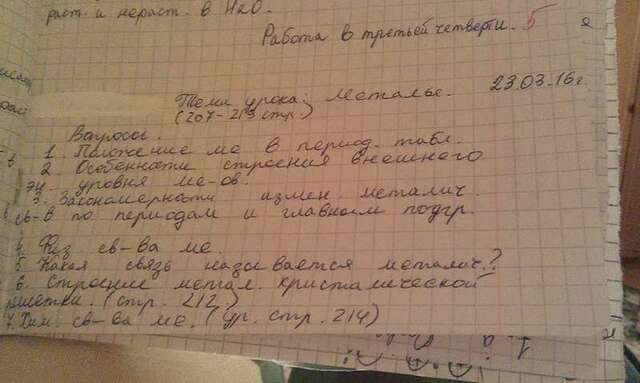 раст. и нераст. в H2O.
Работа в третьей четверти. 5
23.03.16г
Тема урока: Металлы.
(207-213 стр.)
Вопросы.
1. Положение ме в период. табл.
2. Особенности строения внешнего
эн. уровня ме-ов.
3. Закономерности измен. металич.
св-в по периодам и главным подгр.
4. Физ св-ва ме.
5. Какая связь называется металич.?
6. Строение метал. кристалической
решетки. (стр. 212.)
7. Хим. св-ва ме. (ур. стр. 214)